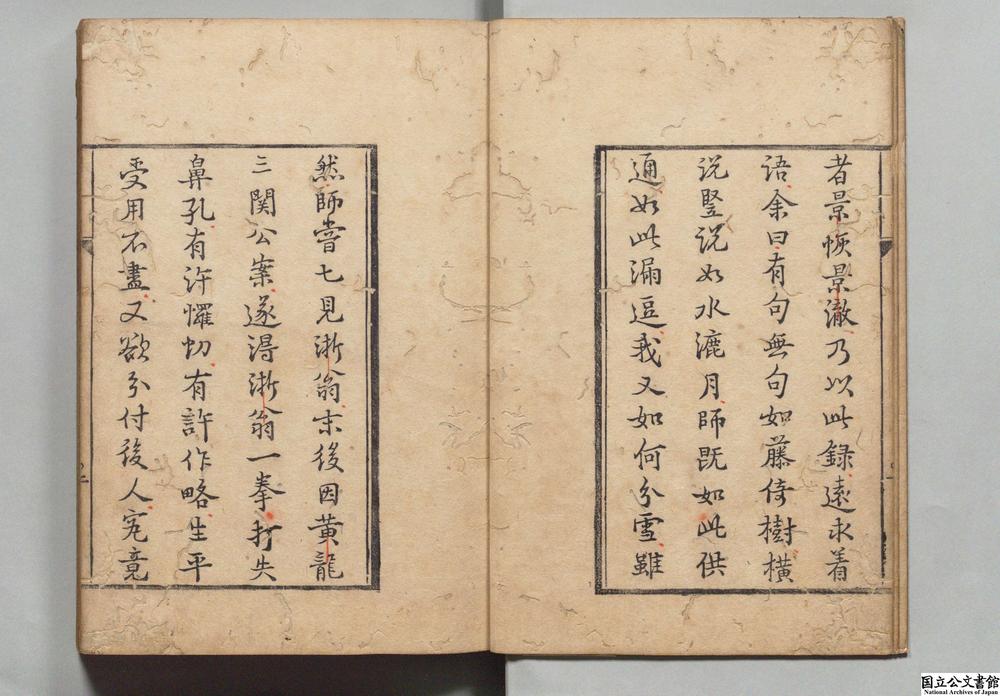 者景恢景澈乃以此録遠求着
語余曰有句無句如藤倚樹橫
说竪说如水漉月師既如此供
通如此漏逗我又如何分雪雖
然師嘗七見浙翁末後因黄龍
三関公案遂淂浙翁一拳打失
鼻孔有許懼㓛有許作略生平
受用不盡又欲分付後人究竟
国立公文書館
National Archives of Japan